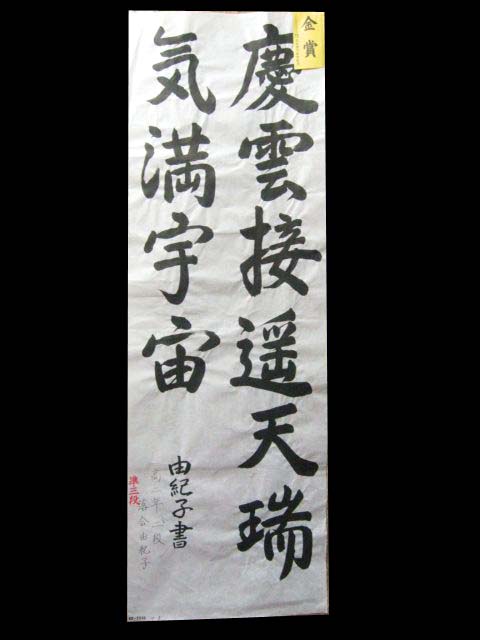 金賞
慶雲接遥天瑞
気満宇宙
由紀子書
高 年二段
落合由紀子
準三段